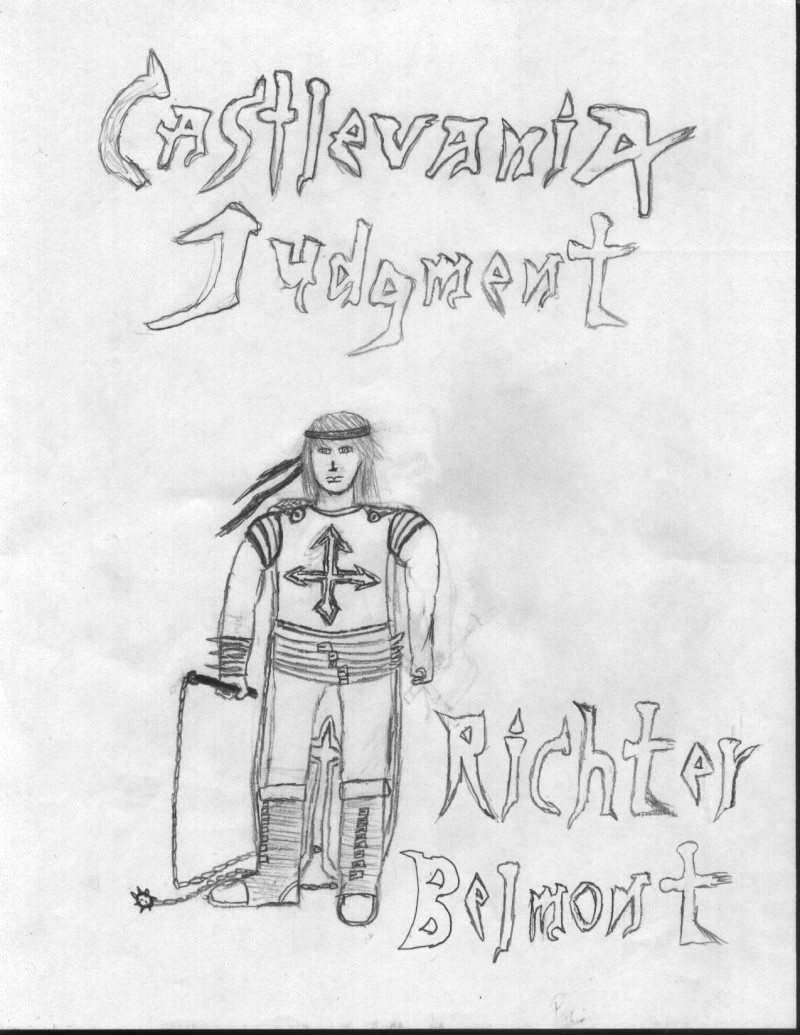 Castlevania
Judgment
Richter
Belmont